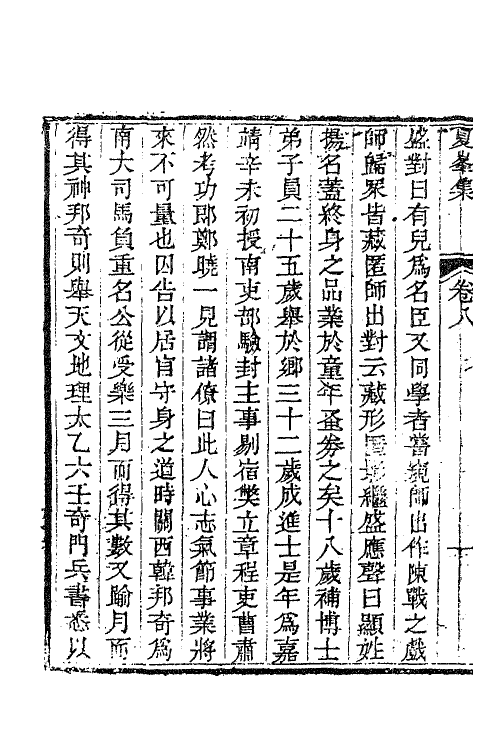 夏峯集 卷八
盛對曰有兒爲名臣又同學者當窺師出作陳戰之戲
師歸衆皆藏匿師出對云藏形匿影繼盛應聲曰顯姓
揚名蓋終身之品業於童年蚤券之矣十八歲補博士
弟子員二十五歲舉於鄉三十二歲成進士是年爲嘉
靖辛未初授南吏部驗封主事剔宿獘立章程吏曹肅
然考功郎鄭曉一見謂諸僚曰此人心志氣節事業將
來不可量也因告以居官守身之道時關西韓邦奇爲
南大司馬負重名公從受樂三月而得其數又踰月而
得其神邦奇則舉天文地理太乙六壬奇門兵書悉以